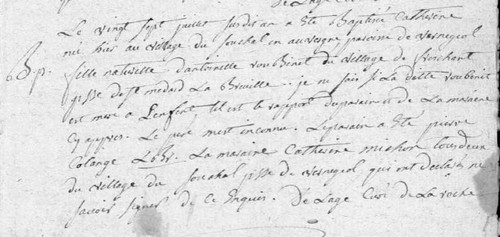 Le vingt sept juillet susdit an a ete Baptisée Catherine
Bp. né hier au village du fouchal en auvergne paroisse de verneujol
fille naturelle d'antoinette vouBinet du village de fouchant
psse de st medard La Brouille. je ne sais si La ditte vouBinet
est mere a Lenfent tel est le raport du parain et de La maraine
Cy apprés. Le pere m'est inconnu. Le parain a été pierre
Colange Labr. La maraine Catherine michon tous deux
du village du fouchal psse de verneujol qui ont declaré ne
savoir signer de ce Enquis. De Lage Curé de La roche